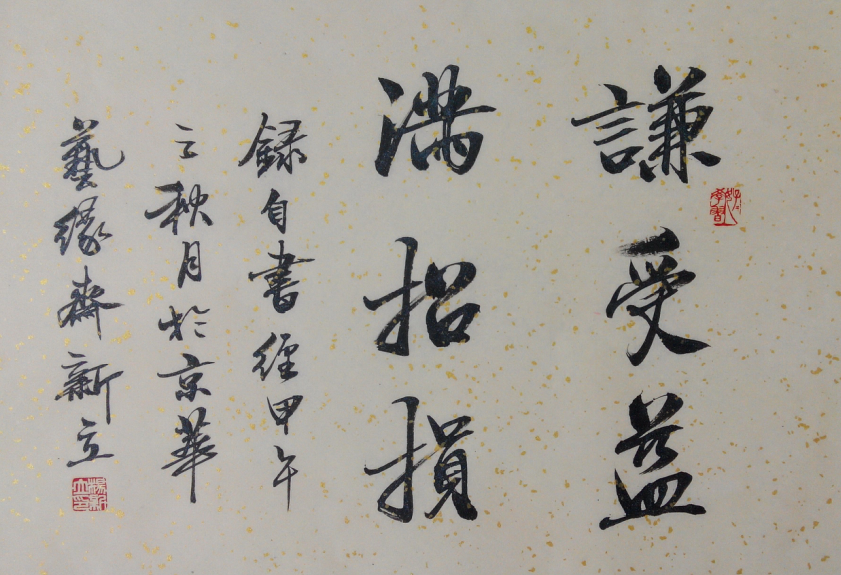 謙受益
滿招損
録自書經甲午
之秋月於京華
藝緣齋新立